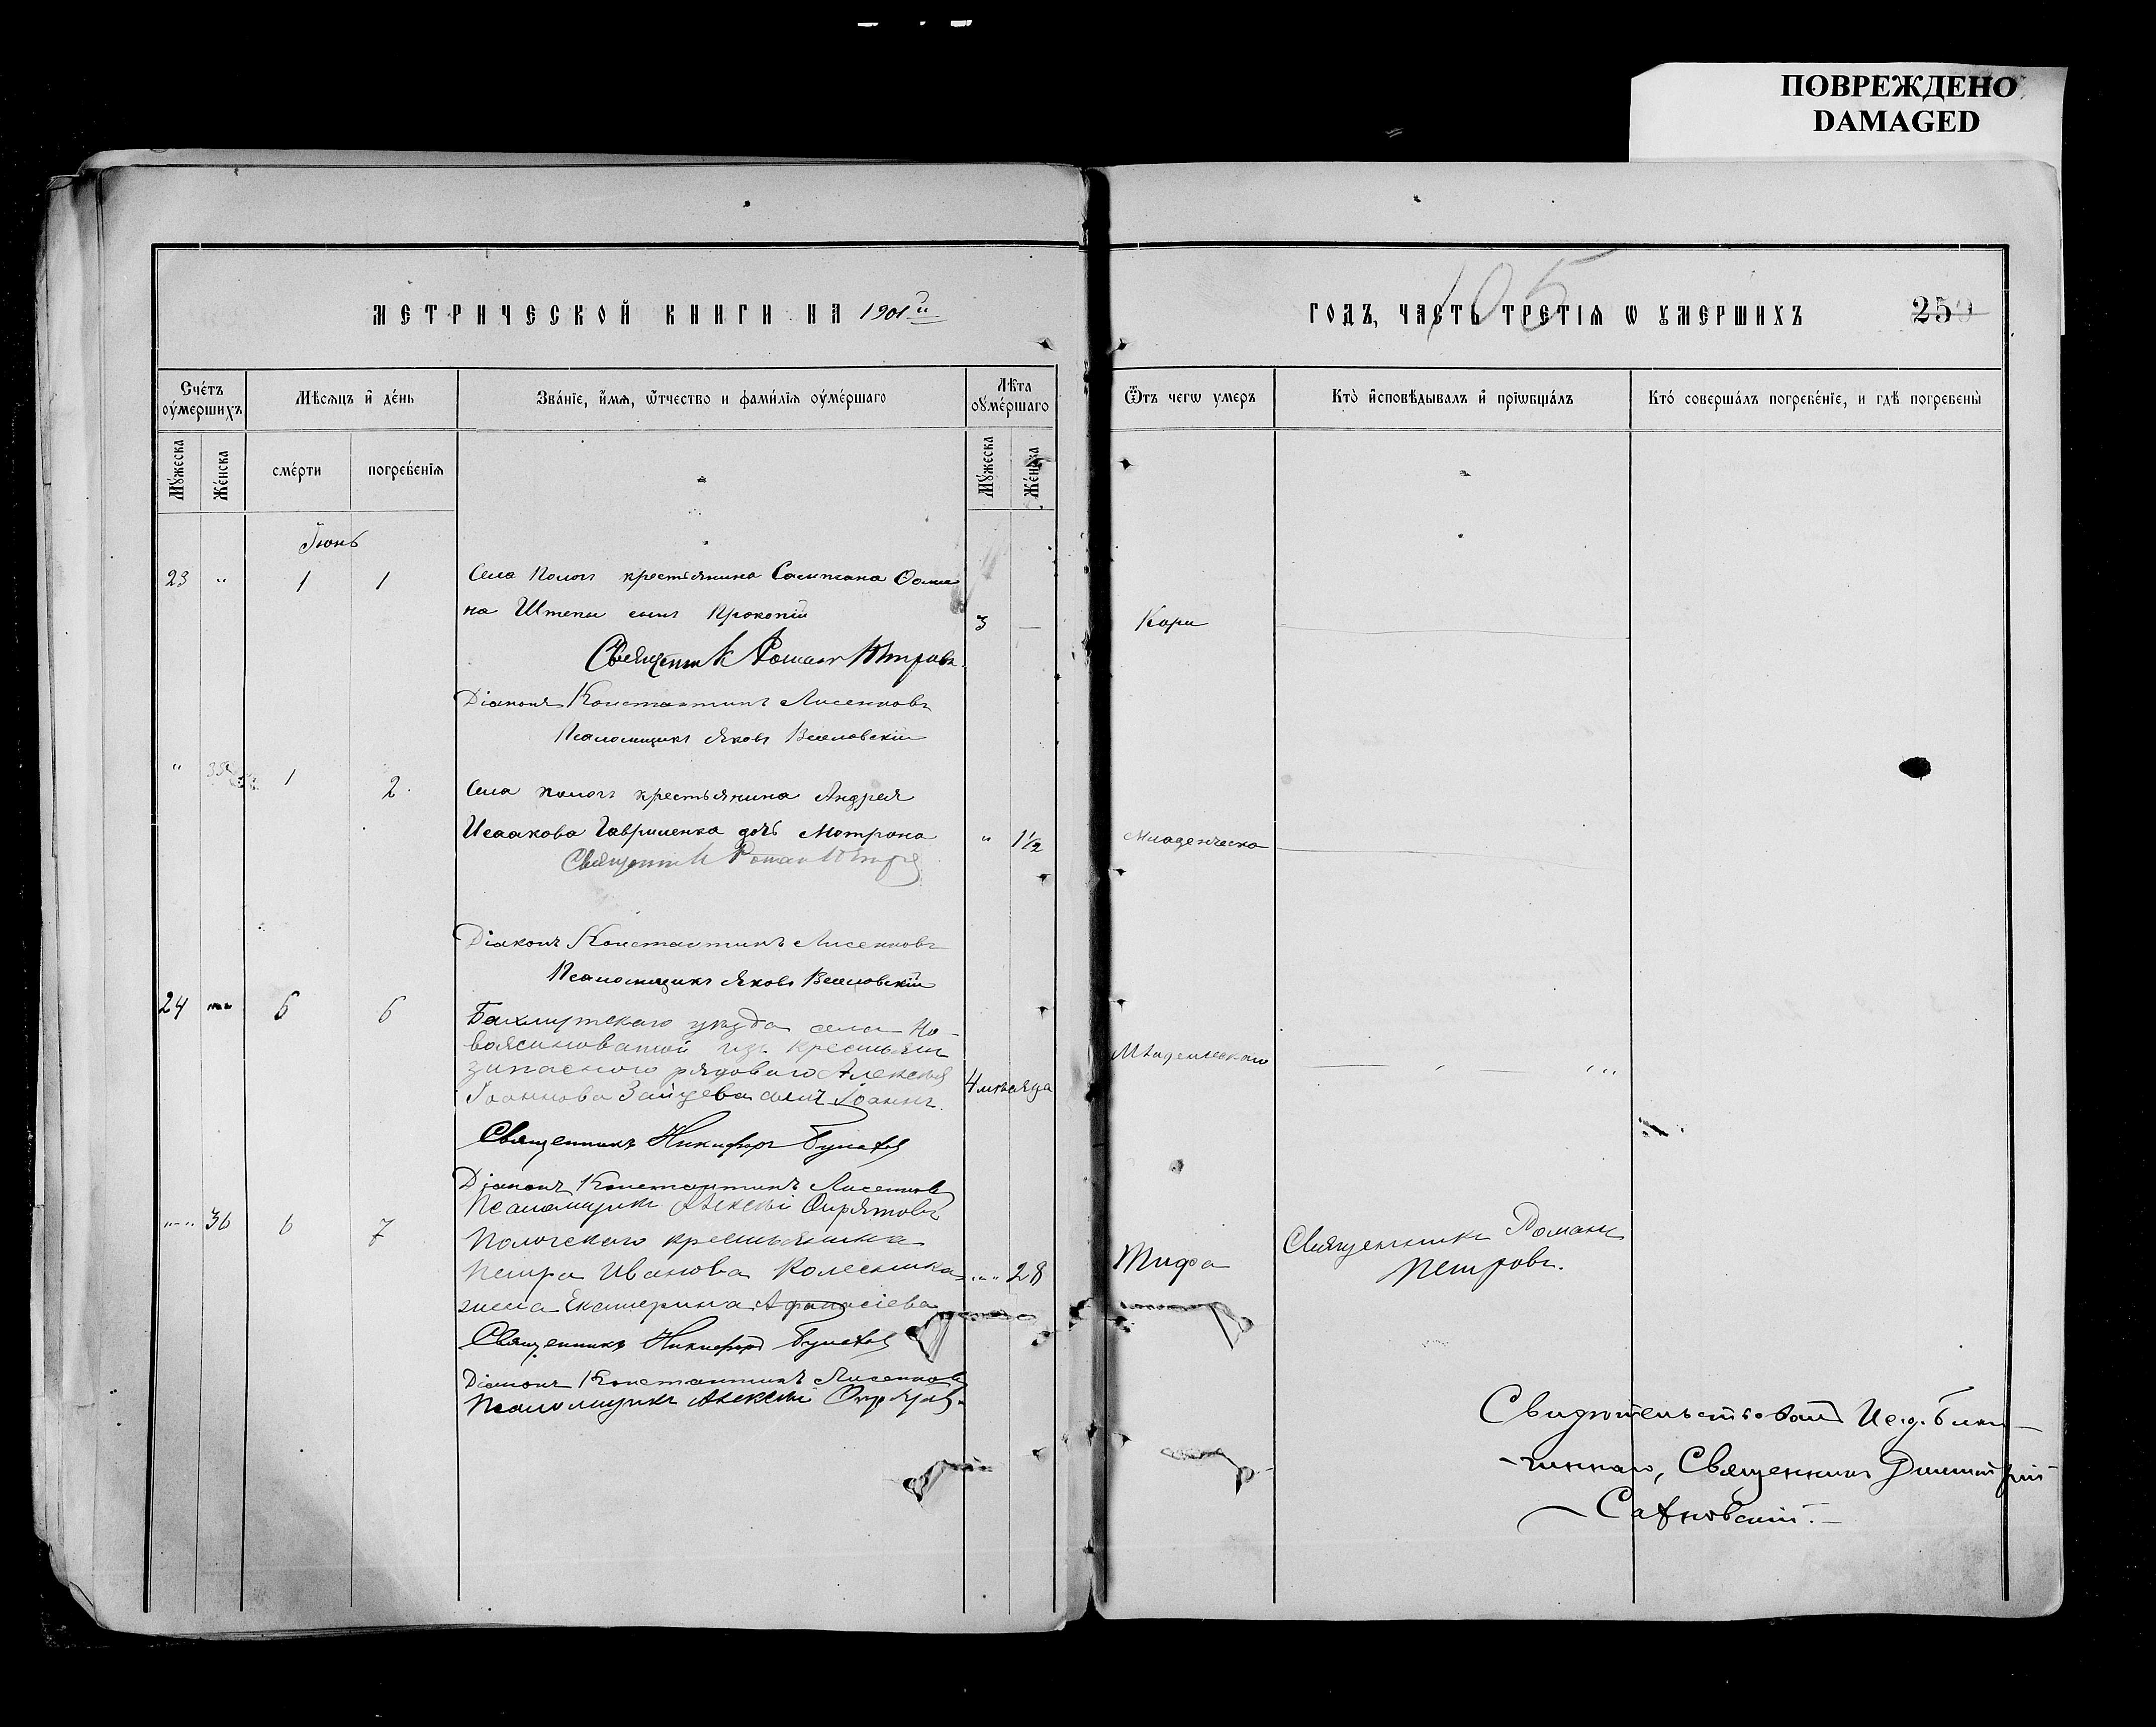 ПОВРЕЖДЕНО
DAMAGED
МЕТРИЧЕСКОЙ КНИГИ НА 1901й
ГОДЪ, ЧАСТЬ ТРЕТІЯ Ѡ ОУМЕРШИХЪ
105
250
Счетъ оумершихъ
Мѣсяцъ и день
Званіе, имя, отчество и фамилія оумершаго
Лѣта оумершаго
Ѿтъ чегѡ умеръ
Кто исповѣдывалъ и пріѡбщалъ
Кто совершалъ погребеніе, и гдѣ погребены
Мужеска
Женска
смерти
погребенія
Мужеска
Женска
Іюнь
23 " 1 1 Села Пологъ крестьянина
на Штепы сынъ Прокопій 3 — Кори
Священникъ Романъ Петровъ
Діаконъ Константинъ Лисенковъ
Псаломщикъ Яковъ Веселовскій
" 35 1 2 Села Пологъ крестьянина Андрея
Исаакова Гавриленка дочь Мотрона " 1½ Младенческа
Священникъ Роман Петровъ
Діаконъ Константинъ Лисенковъ
Псаломщикъ Яковъ Веселовскій
24 6 6 Бахмутскаго уѣзда села Но-
воясиноватой изъ крестьянъ
запаснаго рядоваго Алексѣя
Іоаннова Зайцева сынъ Іоаннъ. 4 мѣсяца Младенческаго
Священникъ Никифоръ
Діаконъ Константинъ Лисенковъ
Псаломщикъ Алексѣй
"-" 36 6 7 Пологскаго крестьянина
Петра Иванова Колесника "-" 28 Тифа Священникъ Романъ Петровъ.
жена Екатерина Афанасіева
Священникъ Никифоръ
Діаконъ Константинъ Лисенковъ
Псаломщикъ Алексѣй
Свидѣтельствовалъ Ис.д. Благо-
-чиннаго, Священникъ Димитрій
Сахновскій.